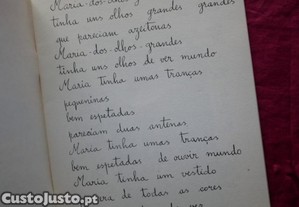 Maria-dos-olhos
tinha uns olhos grandes grandes
que pareciam azeitonas
Maria-dos-olhos-grandes
tinha uns olhos de ver mundo
Maria tinha umas tranças
pequeninas
bem espetadas
pareciam duas antenas
Maria tinha umas tranças
bem espetadas de ouvir mundo
Maria tinha um vestido
de todas as cores
CustoJusto.pt